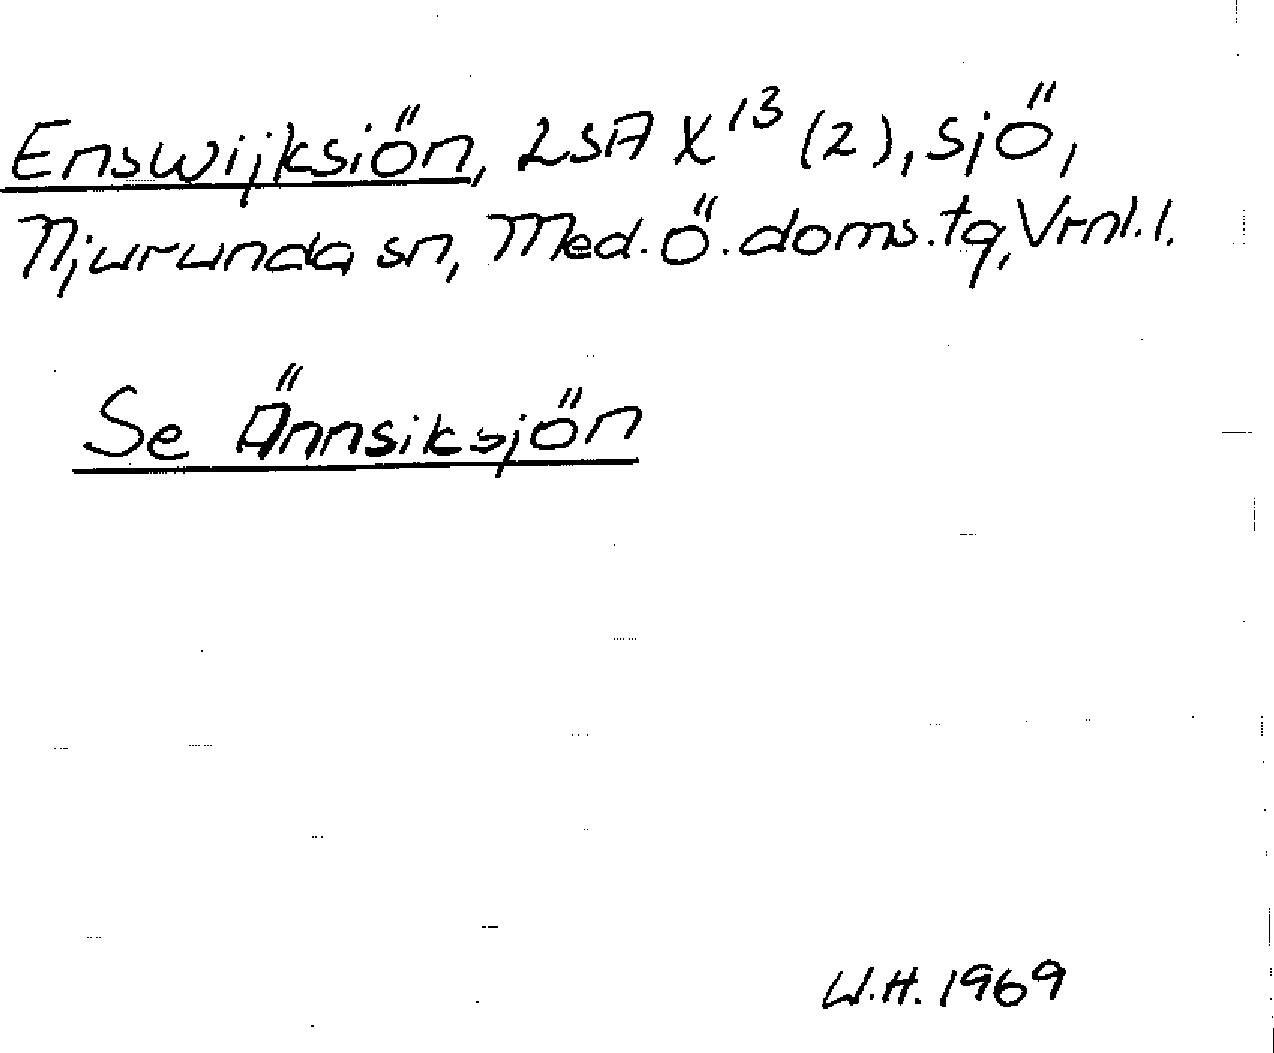 Enswijksiön, LSA X¹³ (2), sjö,
Njurunda sn, Med. Ö. doms. tg, Vrnl. l.
Se Ännsiksjön
W.H. 1969